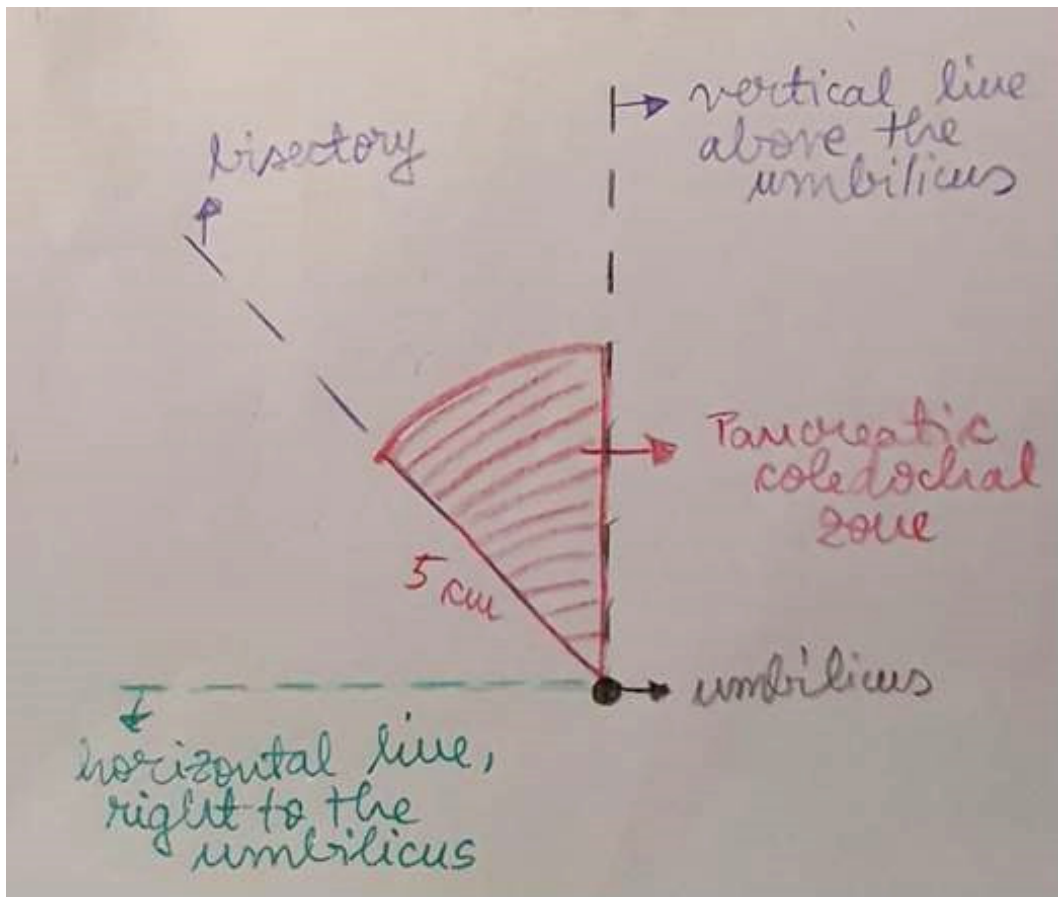 bisectory
vertical line
above the
umbilicus
Pancreatic
coledochal
zone
5 cm
umbilicus
horizontal line,
right to the
umbilicus